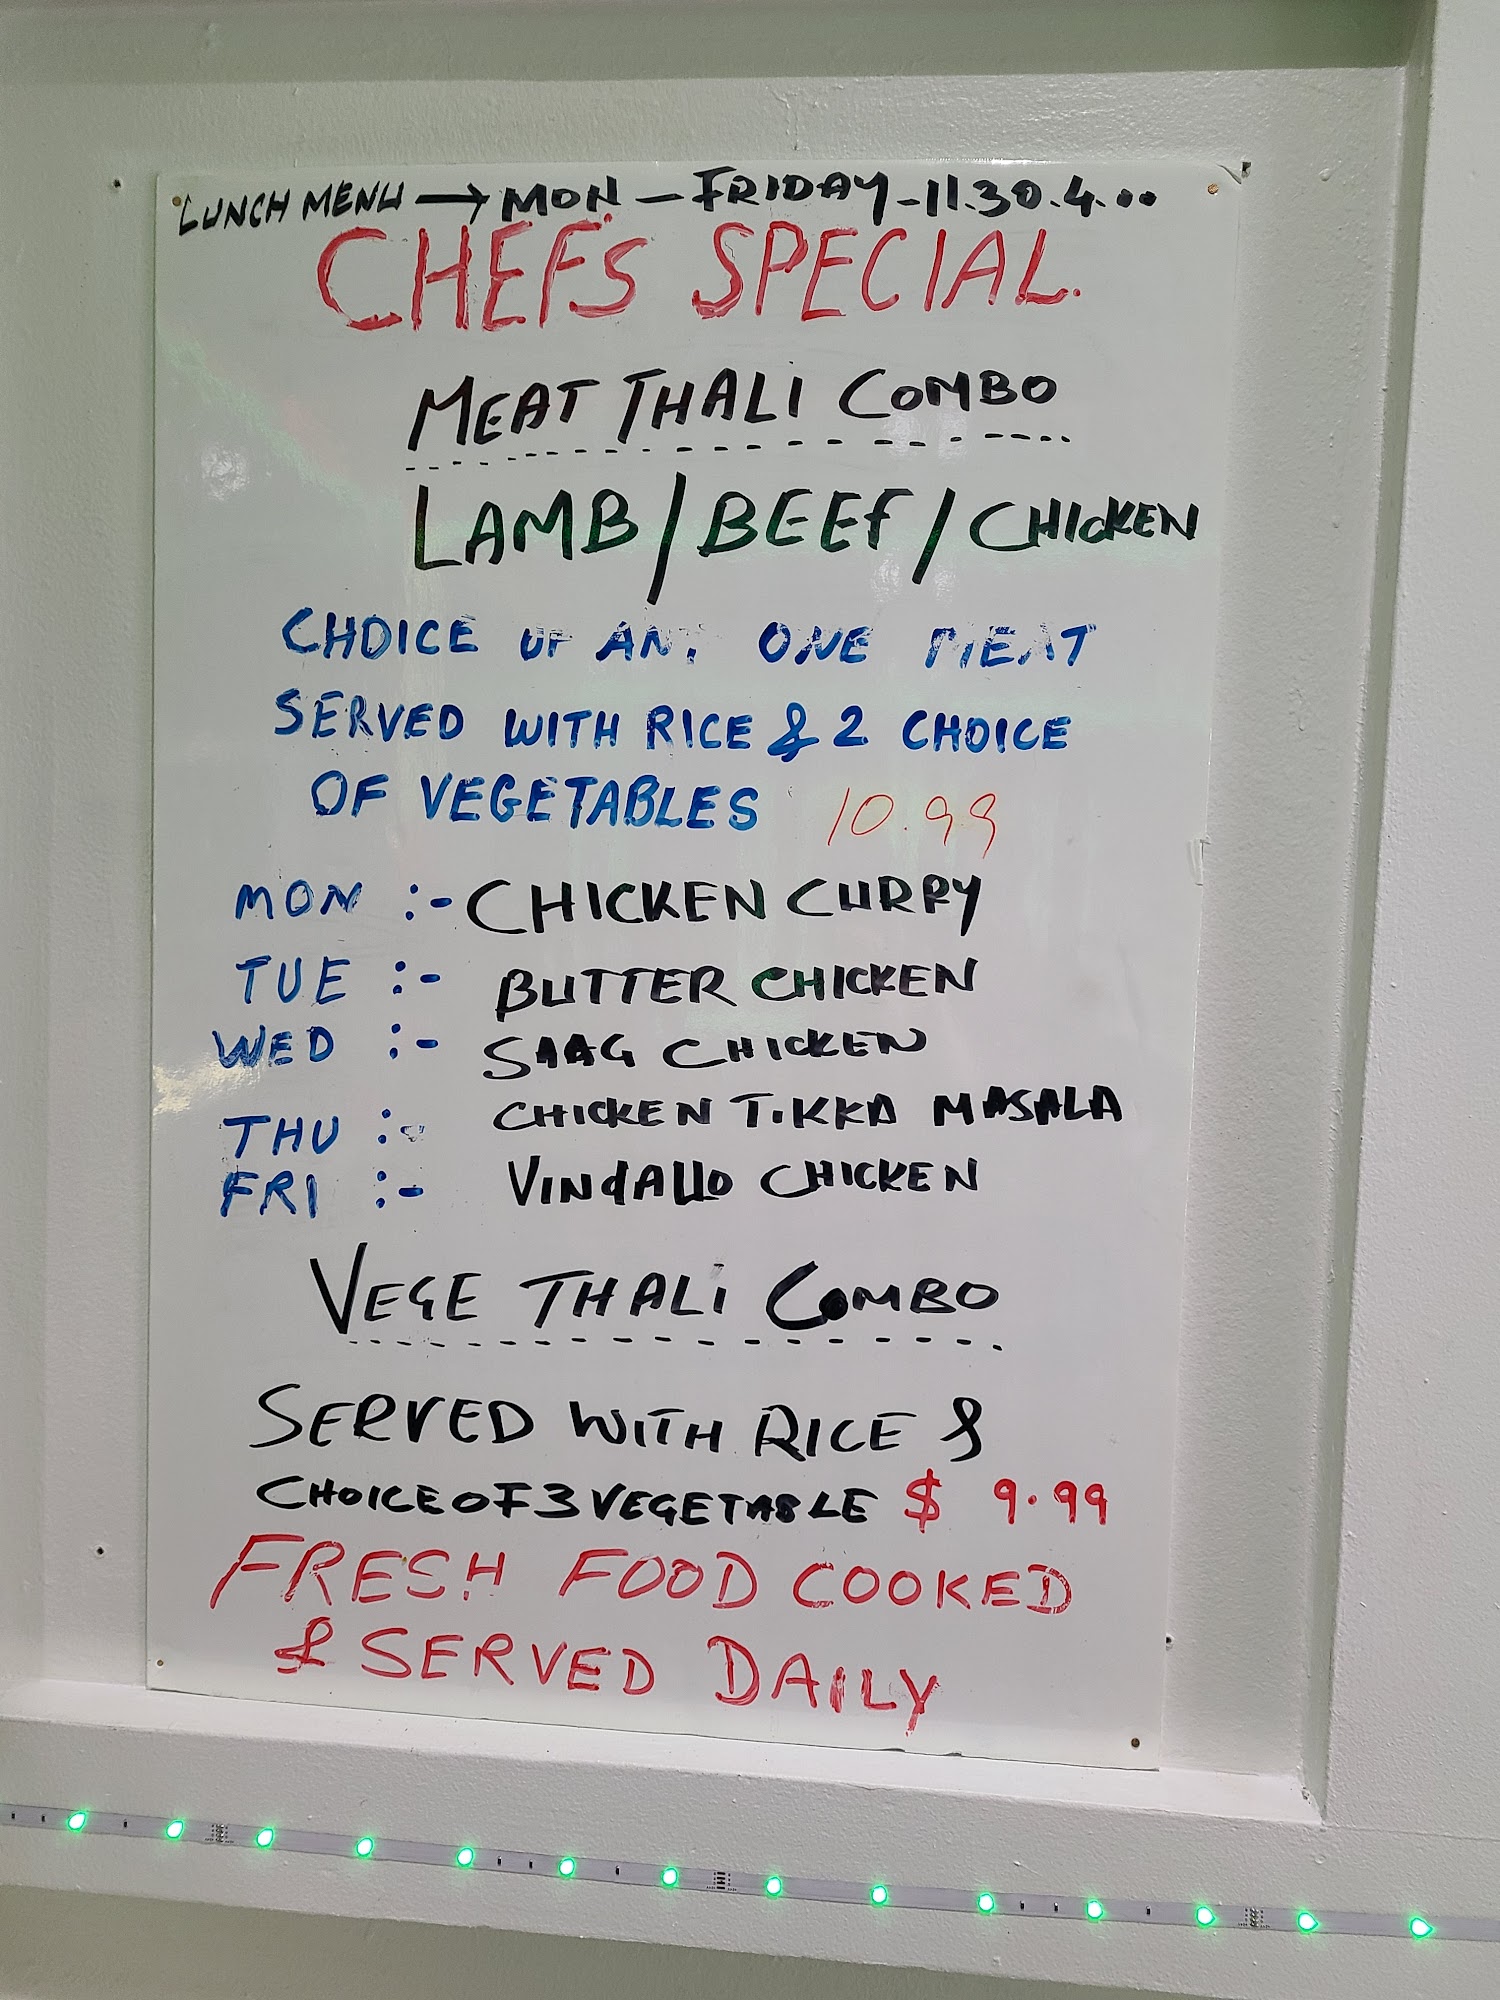 LUNCH MENU → MON - FRIDAY - 11.30.4...
CHEF'S SPECIAL.
MEAT THALI COMBO
LAMB/BEEF/CHICKEN
CHOICE OF ANY ONE MEAT
SERVED WITH RICE & 2 CHOICE
OF VEGETABLES 10.99
MON :- CHICKEN CURRY
TUE :- BUTTER CHICKEN
WED :- SAAG CHICKEN
THU :- CHICKEN TIKKA MASALA
FRI :- VINdALLO CHICKEN
VEGE THALI COMBO
SERVED WITH RICE &
CHOICE OF 3 VEGETABLE $ 9.99
FRESH FOOD COOKED
& SERVED DAILY